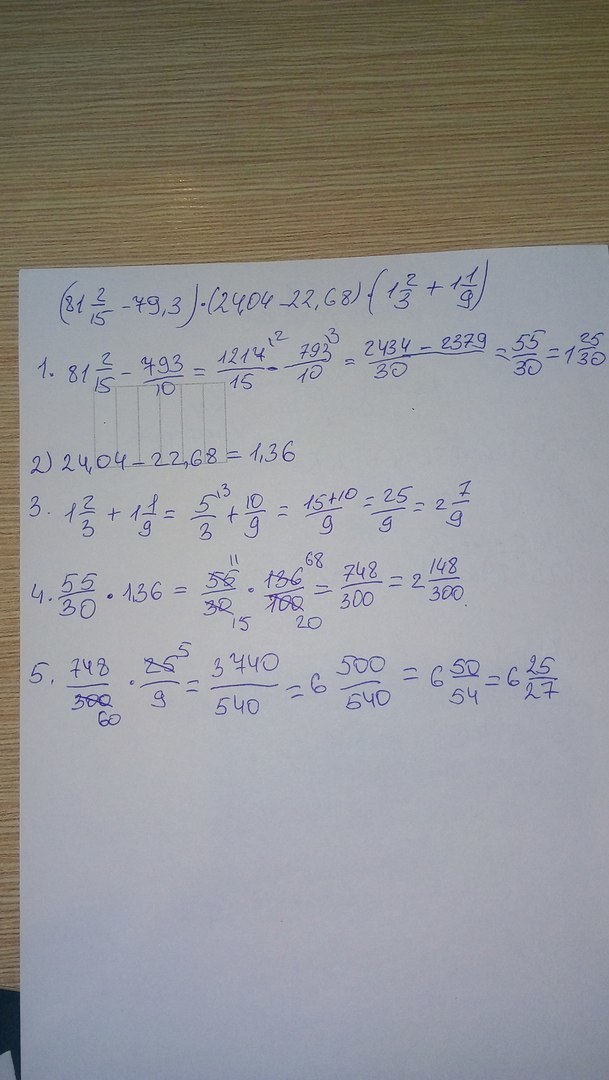 (81 2/15 - 79,3) · (24,04 - 22,68) · (1 2/3 + 1 1/9)
1. 81 2/15 - 793/10 = 1217/15 ·2 - 793/10 ·3 = (2434 - 2379)/30 = 55/30 = 1 25/30
2) 24,04 - 22,68 = 1,36
3. 1 2/3 + 1 1/9 = 5/3 ·3 + 10/9 = (15+10)/9 = 25/9 = 2 7/9
4. 55/30 · 1,36 = 55/30 11 15 · 136/100 68 20 = 748/300 = 2 148/300
5. 748/300 60 · 25/9 5 = 3740/540 = 6 500/540 = 6 50/54 = 6 25/27